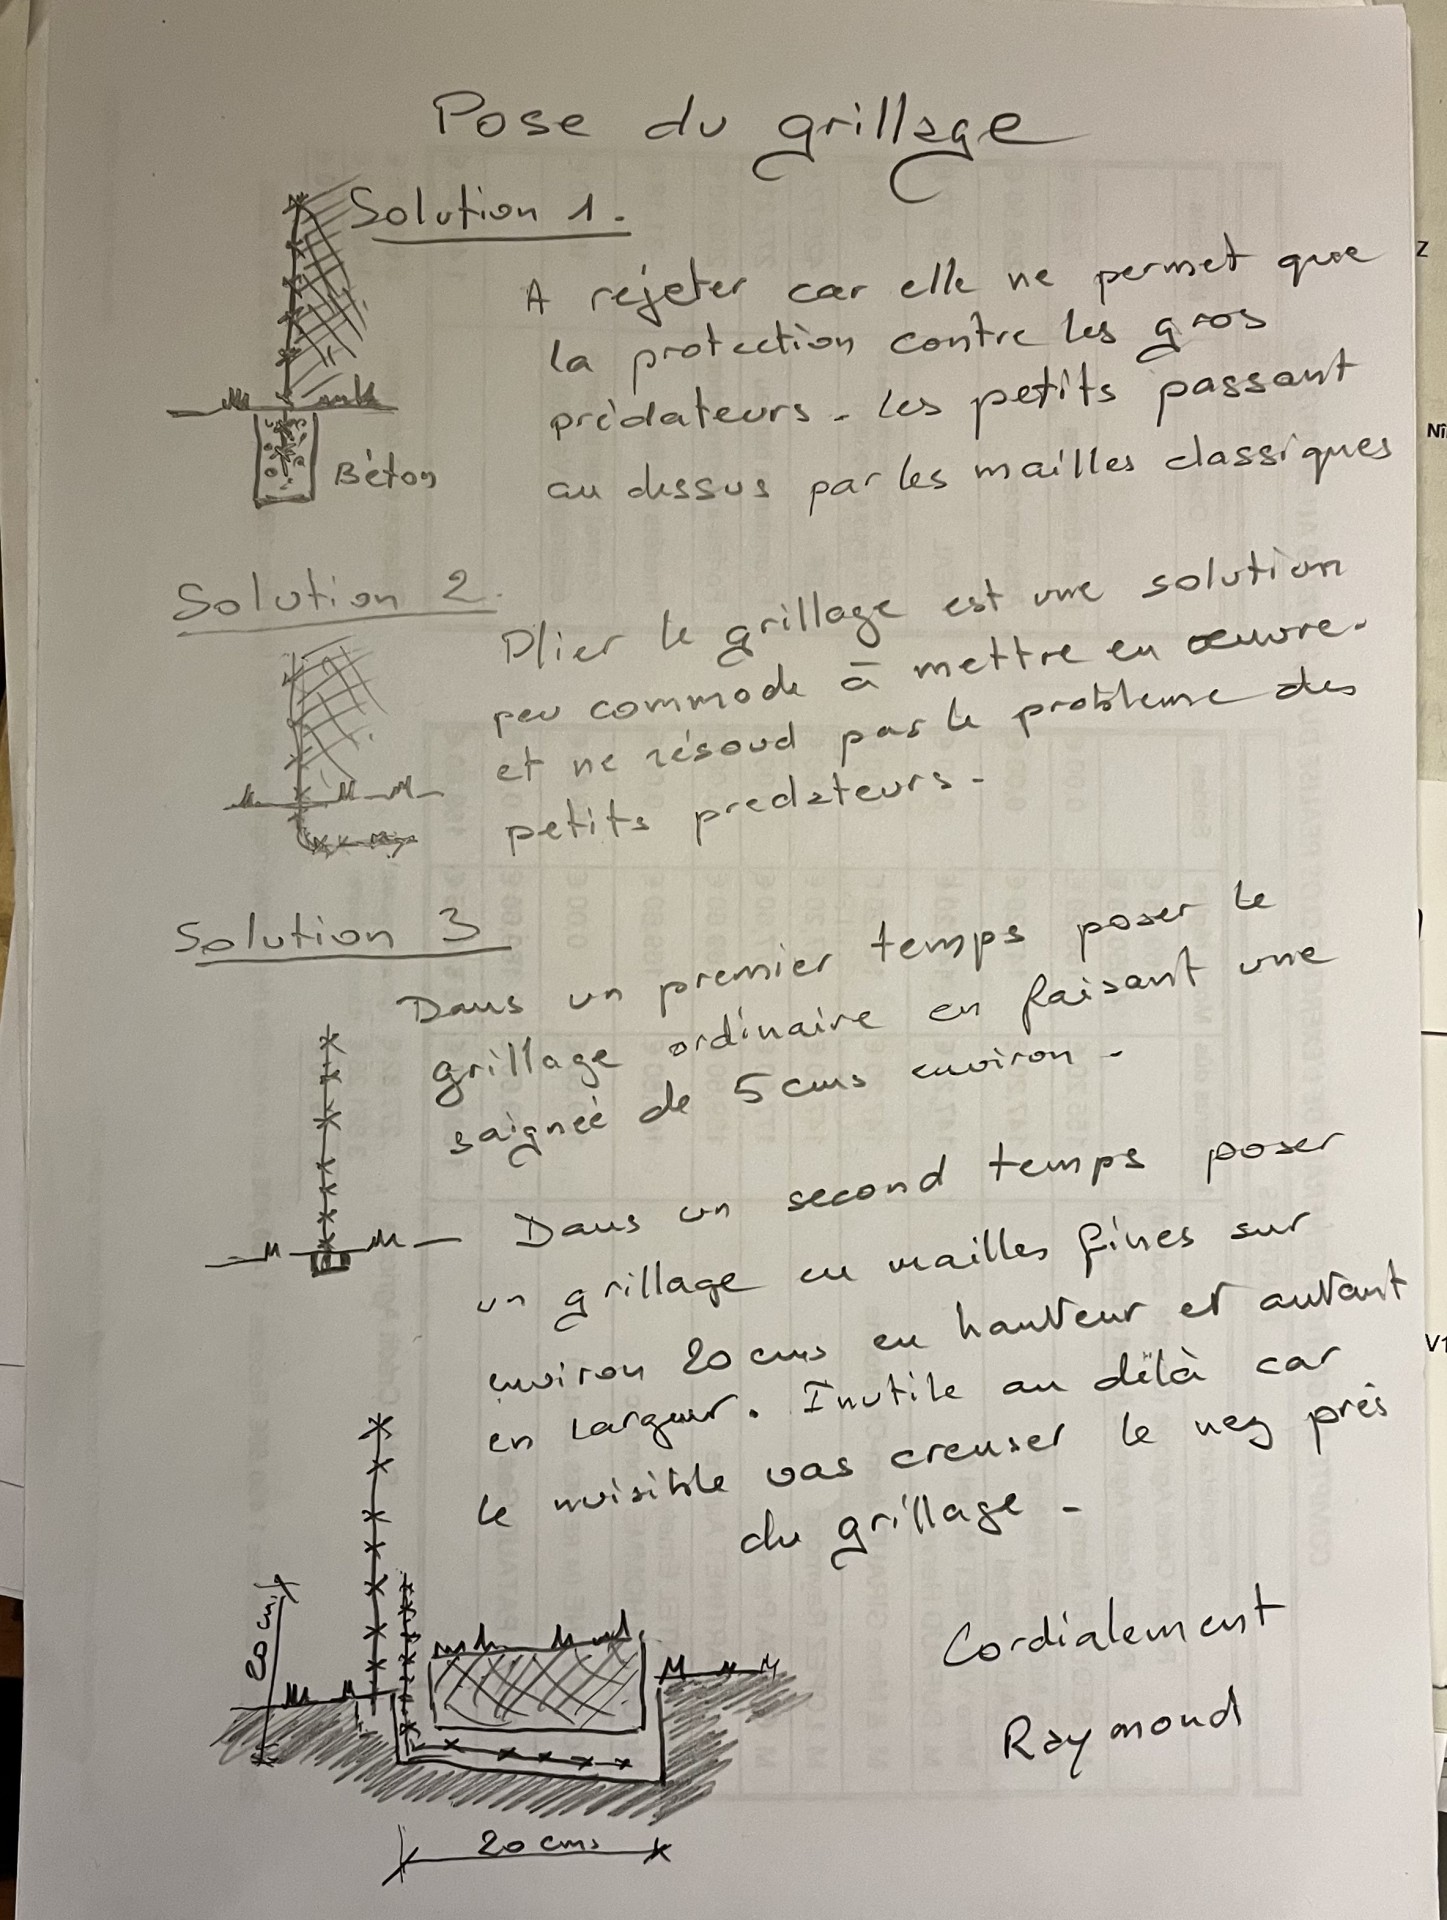 Pose du grillage
Solution 1.
A rejeter car elle ne permet que
la protection contre les gros
prédateurs - les petits passant
au dessus par les mailles classiques
Béton
Solution 2.
Plier le grillage est une solution
peu commode à mettre en œuvre.
et ne résoud pas le problème des
petits predateurs -
Solution 3
Dans un premier temps poser le
grillage ordinaire en faisant une
saignée de 5 cms environ -
Dans un second temps poser
un grillage en mailles fines sur
environ 20 cms en hauteur et autant
en largeur. Inutile au délà car
le nuisible vas creuser le nez près
du grillage -
Cordialement
Raymond
20 cm
20 cms